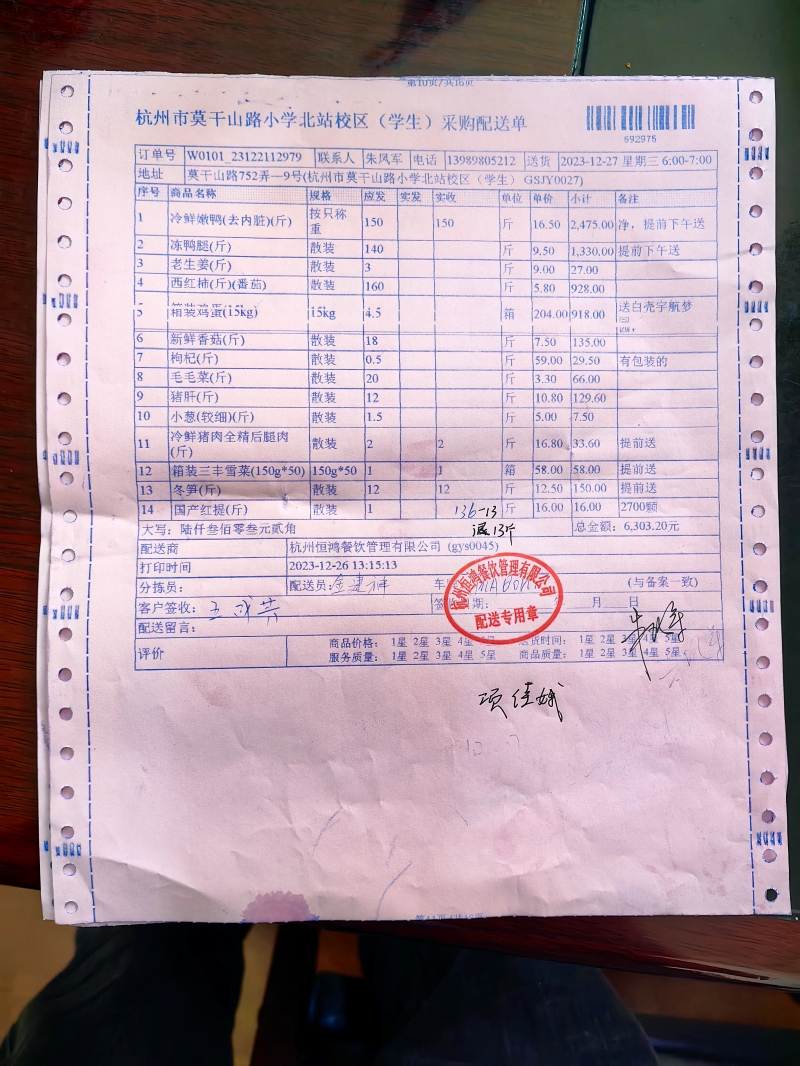 第10页/共16页
杭州市莫干山路小学北站校区（学生）采购配送单
692975
订单号 W0101_23122112979 联系人 朱凤军 电话 13989805212 送货 2023-12-27 星期三 6:00-7:00
地址 莫干山路752弄—9号(杭州市莫干山路小学北站校区（学生） GSJY0027)
序号 商品名称 规格 应发 实发 实收 单位 单价 小计 备注
1 冷鲜嫩鸭(去内脏)(斤) 按只称重 150 150 斤 16.50 2,475.00 净，提前下午送
2 冻鸭腿(斤) 散装 140 斤 9.50 1,330.00 提前下午送
3 老生姜(斤) 散装 3 斤 9.00 27.00
4 西红柿(斤)(番茄) 散装 160 斤 5.80 928.00
5 箱装鸡蛋(15kg) 15kg 4.5 箱 204.00 918.00 送白壳宇航梦
6 新鲜香菇(斤) 散装 18 斤 7.50 135.00
7 枸杞(斤) 散装 0.5 斤 59.00 29.50 有包装的
8 毛毛菜(斤) 散装 20 斤 3.30 66.00
9 猪肝(斤) 散装 12 斤 10.80 129.60
10 小葱(较细)(斤) 散装 1.5 斤 5.00 7.50
11 冷鲜猪肉全精后腿肉(斤) 散装 2 2 斤 16.80 33.60 提前送
12 箱装三丰雪菜(150g*50) 150g*50 1 1 箱 58.00 58.00 提前送
13 冬笋(斤) 散装 12 12 斤 12.50 150.00 提前送
14 国产红提(斤) 散装 1 斤 16.00 16.00 2700颗
136-13
退13斤
大写：陆仟叁佰零叁元贰角 总金额：6,303.20元
配送商 杭州恒鸿餐饮管理有限公司 (gys0045)
打印时间 2023-12-26 13:15:13
分拣员： 配送员: 金建祥 车 (与备案一致)
客户签收： 签收日期： 月 日
杭州恒鸿餐饮管理有限公司
配送专用章
配送留言：
评价 商品价格： 1星 2星 3星 4星 5星 送货时间： 1星 2星 3星 4星 5星
服务质量： 1星 2星 3星 4星 5星 商品质量： 1星 2星 3星 4星 5星
项佳娥